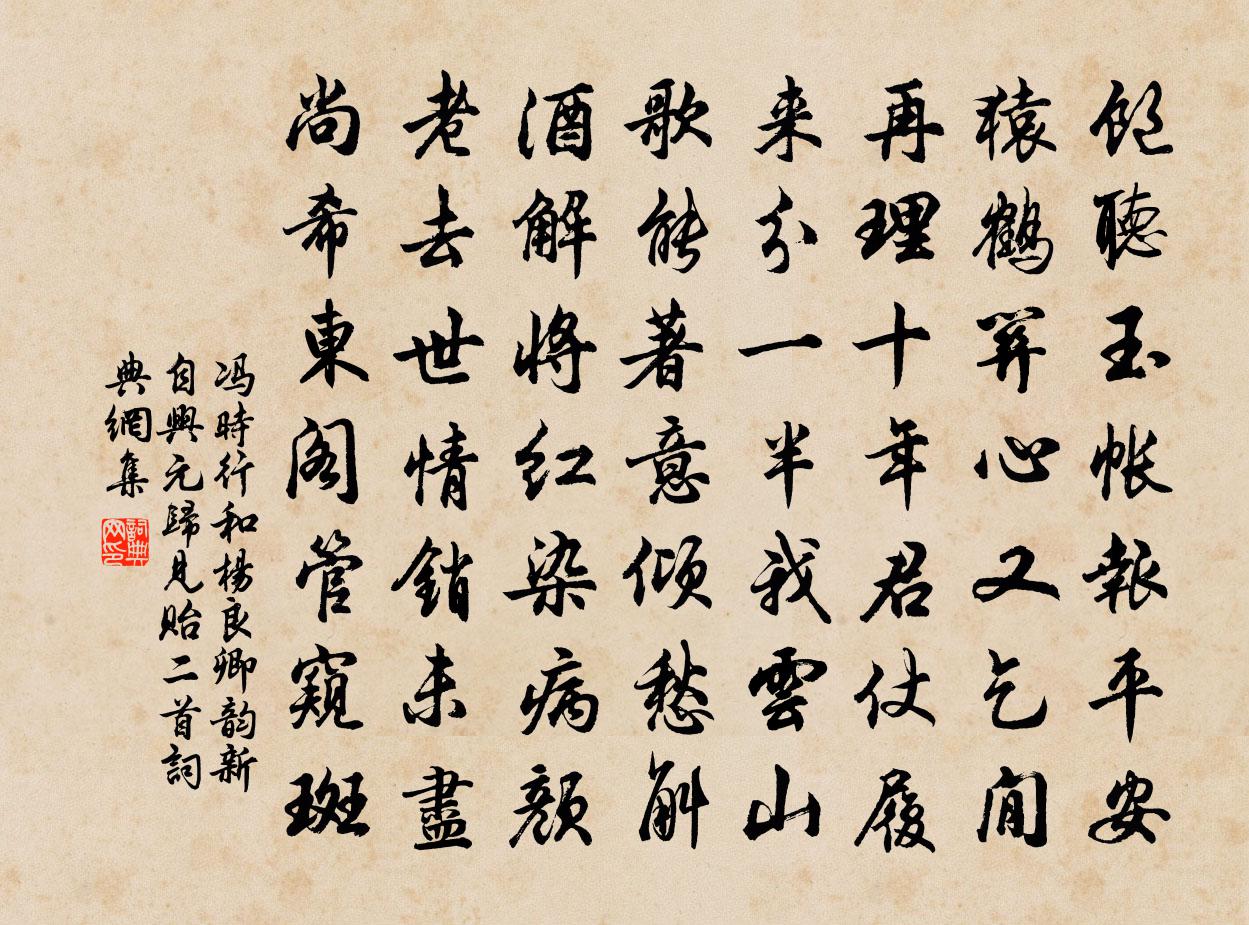 飽聽玉帳報平安
猿鶴關心又乞閒
再理十年君仗屨
来分一半我雲山
歌能著意傾愁斛
酒解將紅染病顏
老去世情銷未盡
尚希東閣管窺斑
冯時行和楊良卿韵新
自興元歸見貽二首詞
典網集
詞典网印